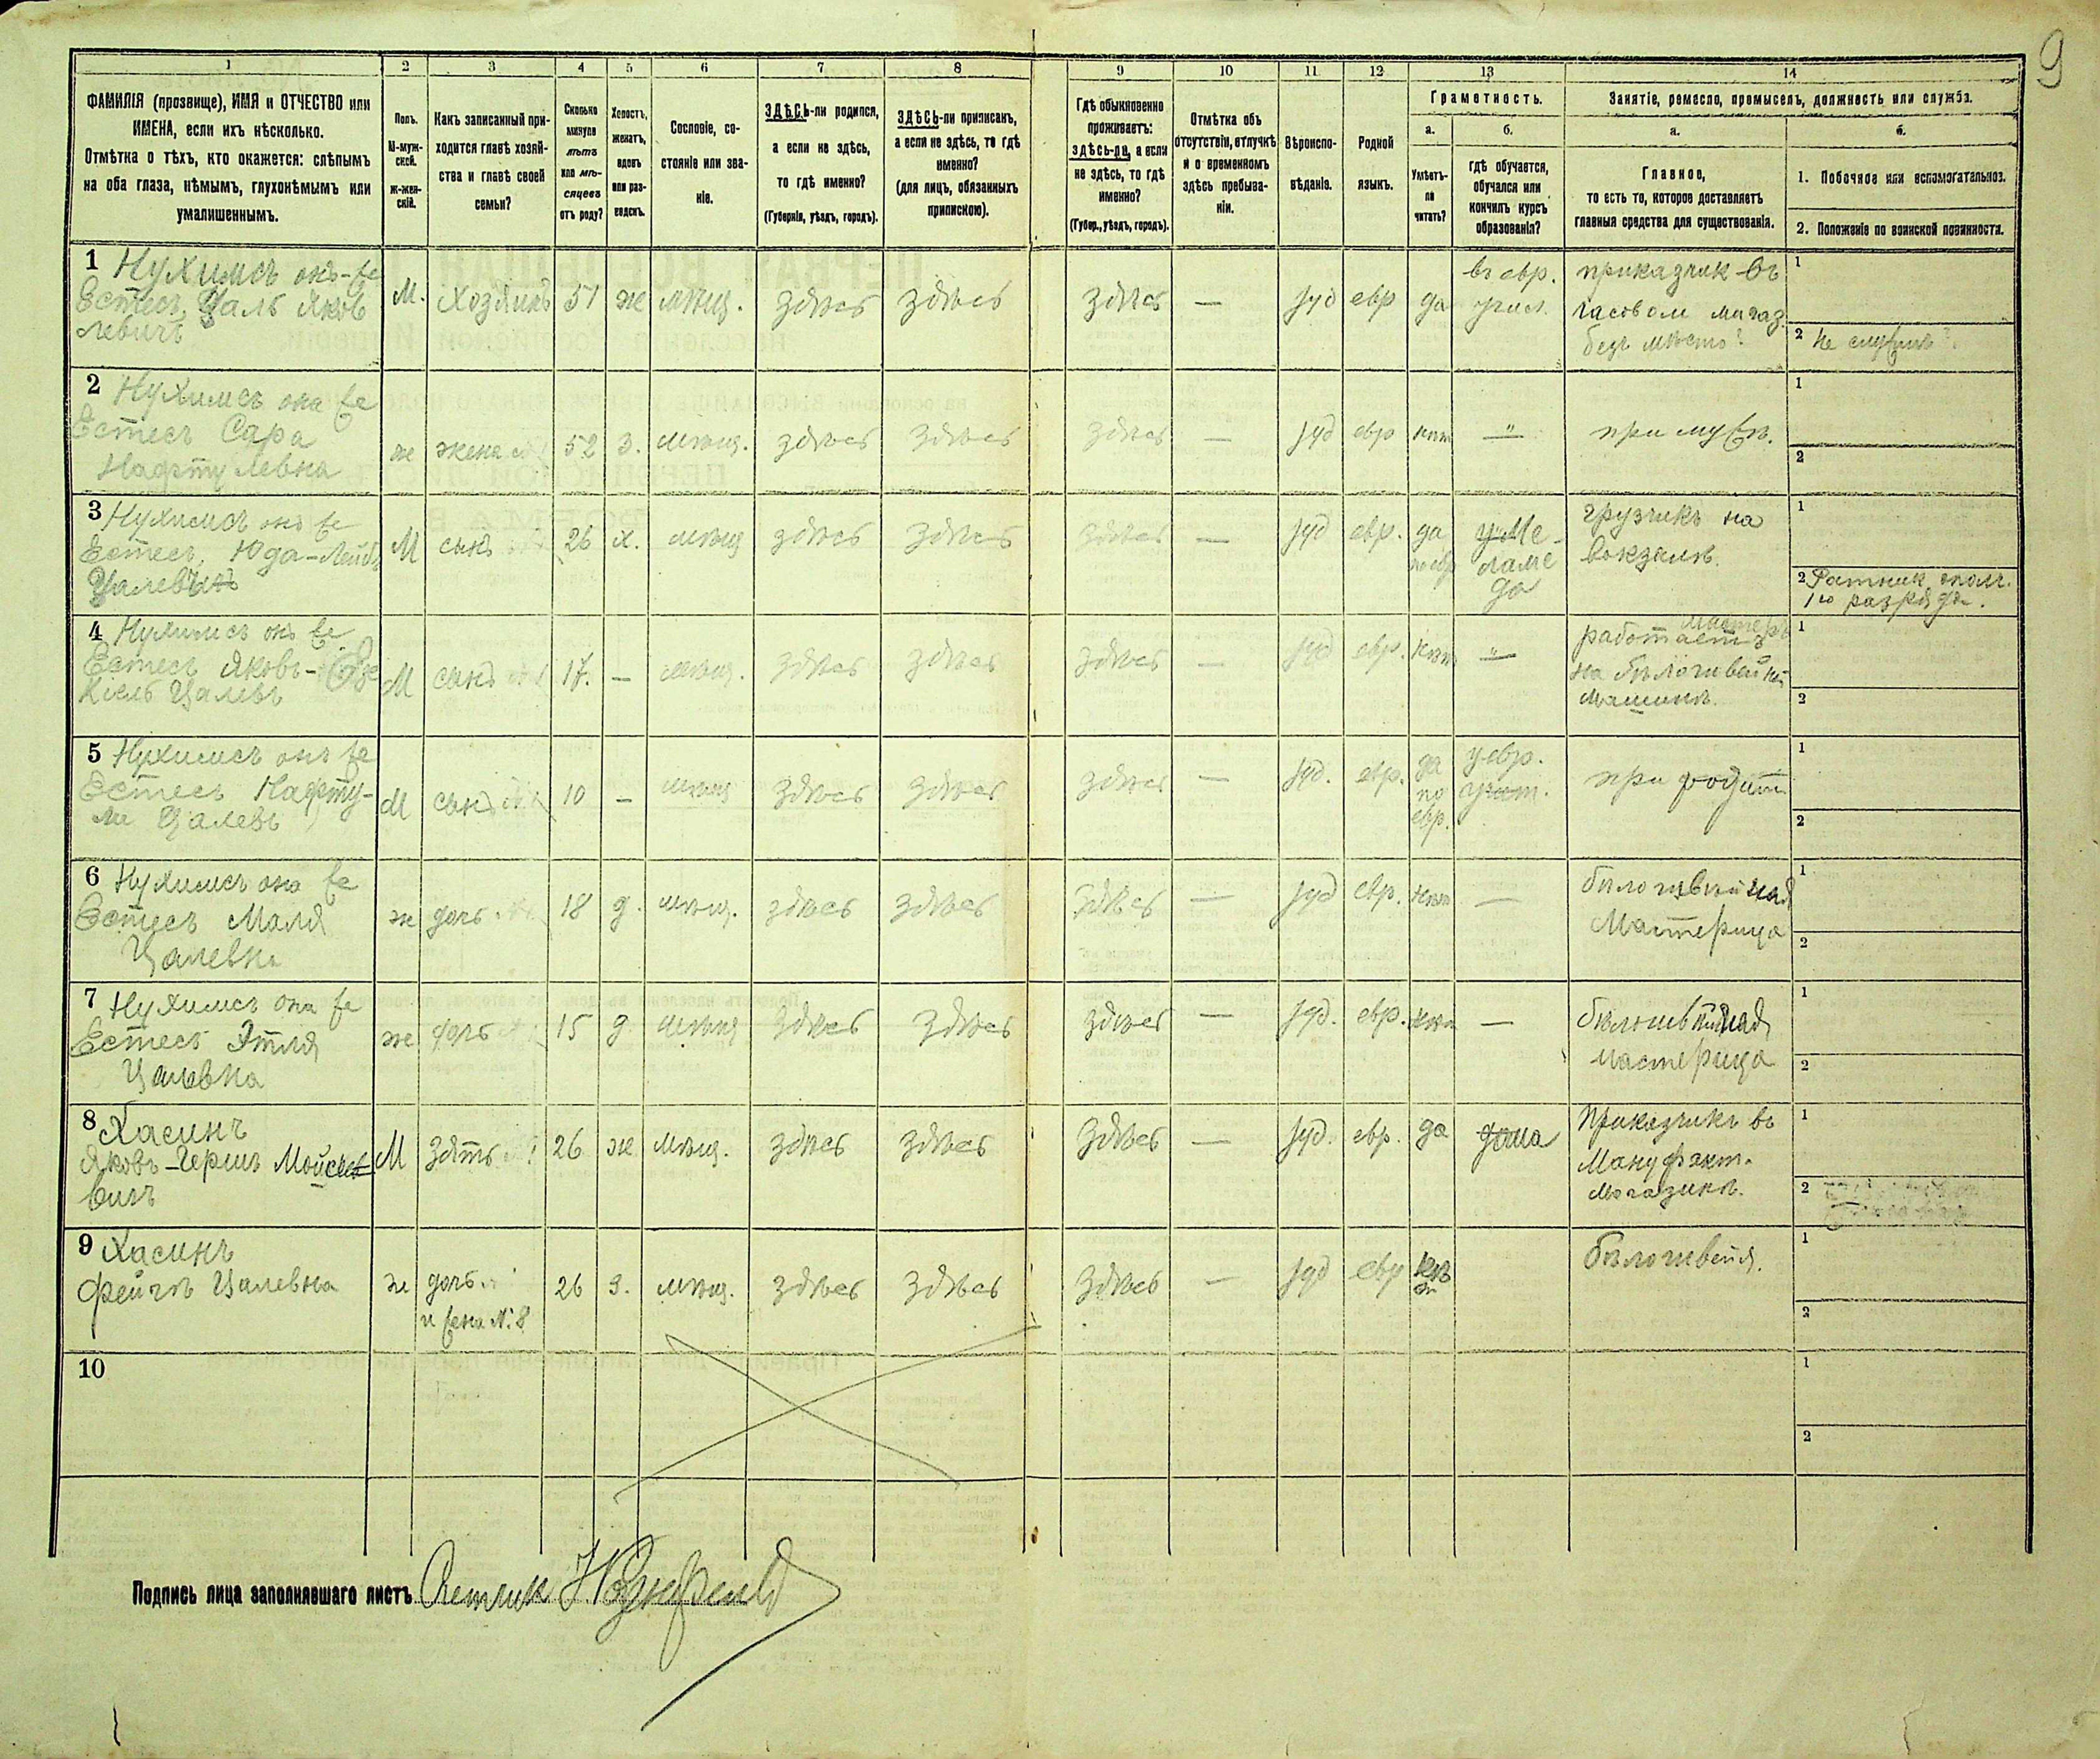 9
1 2 3 4 5 6 7 8 9 10 11 12 13 14
ФАМИЛІЯ (прозвище), ИМЯ и ОТЧЕСТВО или
ИМЕНА, если ихъ нѣсколько.
Отмѣтка о тѣхъ, кто окажется: слѣпымъ
на оба глаза, нѣмымъ, глухонѣмымъ или
умалишеннымъ.
Полъ.
М-муж-
ской.
ж-жен-
скій.
Какъ записанный при-
ходится главѣ хозяй-
ства и главѣ своей
семьи?
Сколько
минуло
лѣтъ
или мѣ-
сяцевъ
отъ роду?
Холостъ,
женатъ,
вдовъ
или раз-
веденъ.
Сословіе, со-
стояніе или зва-
ніе.
ЗДѢСЬ-ли родился,
а если не здѣсь,
то гдѣ именно?
(Губернія, уѣздъ, городъ).
ЗДѢСЬ-ли приписанъ,
а если не здѣсь, то гдѣ
именно?
(для лицъ, обязанныхъ
припискою).
Гдѣ обыкновенно
проживаетъ:
здѣсь-ли, а если
не здѣсь, то гдѣ
именно?
(Губер., уѣздъ, городъ).
Отмѣтка объ
отсутствіи, отлучкѣ
и о временномъ
здѣсь пребыва-
ніи.
Вѣроиспо-
вѣданіе.
Родной
языкъ.
Грамотность.
а.
Умѣетъ-
ли
читать?
б.
Гдѣ обучается,
обучался или
кончилъ курсъ
образованія?
Занятіе, ремесло, промыселъ, должность или служба.
а.
Главное,
то есть то, которое доставляетъ
главныя средства для существованія.
б.
1. Побочное или вспомогательное.
2. Положеніе по воинской повинности.
1 Нухимсъ онъ-же
Естесъ Цаль Яков
левичъ
М. Хозяинъ 51 ж мѣщ. здѣсь здѣсь здѣсь — іуд евр да
въ евр.
учил.
приказчик въ
часовом магаз.
безъ мѣста
1
2 не служилъ
2 Нухимсъ она же
Естесъ Сара
Нафтулевна
ж жена 52 з. мѣщ. здѣсь здѣсь здѣсь — іуд евр нѣт — при мужѣ.
1
2
3 Нухимсъ онъ же
Естесъ Юда-Лейбъ
Цалевъ
М сынъ 26 х. мѣщ здѣсь здѣсь здѣсь — іуд евр. да
по евр
у Ме-
ламе
да
грузчикъ на
вокзалѣ.
1
2 Ратник ополч.
1го разряда.
4 Нухимсъ онъ же
Естесъ Яковъ-
Цалевъ
М сынъ 17. — мѣщ. здѣсь здѣсь здѣсь — іуд евр. нѣт —
работаетъ
на бѣлошвейной
машинѣ.
1
2
5 Нухимсъ онъ же
Естесъ Нафту-
ли Цалевъ
М сынъ 10 — мѣщ здѣсь здѣсь здѣсь — іуд. евр.
да
по
евр.
у евр.
учит.
при родит
1
2
6 Нухимсъ она же
Естесъ Маля
Цалевна
ж дочь 18 д. мѣщ. здѣсь здѣсь здѣсь — іуд евр. нѣт —
бѣлошвейная
Мастерица
1
2
7 Нухимсъ она же
Естесъ Этля
Цалевна
ж дочь 15 д. мѣщ здѣсь здѣсь здѣсь — іуд. евр. нѣт —
бѣлошвейная
мастерица
1
2
8 Хасинъ
Яковъ-Гершъ Мойсее
вичъ
М Зять 26 ж мѣщ. здѣсь здѣсь здѣсь — іуд. евр. да дома
Приказчикъ въ
Мануфакт.
магазинѣ.
1
2
9 Хасинъ
Фейгъ Цалевна
ж дочь
и жена №8
26 з. мѣщ. здѣсь здѣсь здѣсь — іуд евр
бѣлошвейя.
1
2
10
1
2
Подпись лица заполнявшаго листъ